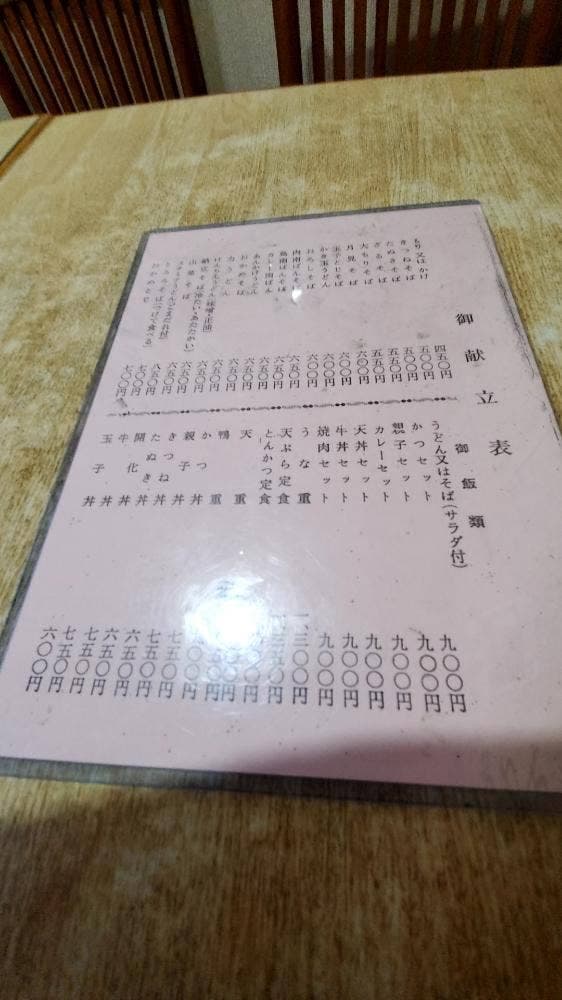 御献立表
もり又はかけ 四五〇円
きつねそば 五〇〇円
たぬきそば 五〇〇円
ざるそば 五五〇円
大もりそば 五五〇円
月見そば 六〇〇円
玉子とじそば 六〇〇円
かき玉うどん 六〇〇円
おろしそば 六〇〇円
肉南ばんそば 六五〇円
鳥南ばんそば 六五〇円
カレー南ばん 六五〇円
あんかけうどん 六五〇円
おかめそば 六五〇円
力うどん 六五〇円
けんちんうどん(味噌・正油) 六五〇円
納豆そば(冷たい・あたたかい) 六五〇円
山菜そば 六五〇円
スタミナうどん(ごまだれ付) 八五〇円
とろろそば(つけて食べる) 七〇〇円
おかめとじ 七〇〇円
御飯類
うどん又はそば(サラダ付)
かつセット 九〇〇円
親子セット 九〇〇円
カレーセット 九〇〇円
天丼セット 九〇〇円
牛丼セット 九〇〇円
焼肉セット 九〇〇円
うな重 一、三〇〇円
天ぷら定食
とんかつ定食
天重
鴨重
かつ丼 七五〇円
親子丼 七五〇円
きつね丼 六五〇円
たぬき丼 六五〇円
開化丼 七五〇円
牛丼 七五〇円
玉子丼 六〇〇円